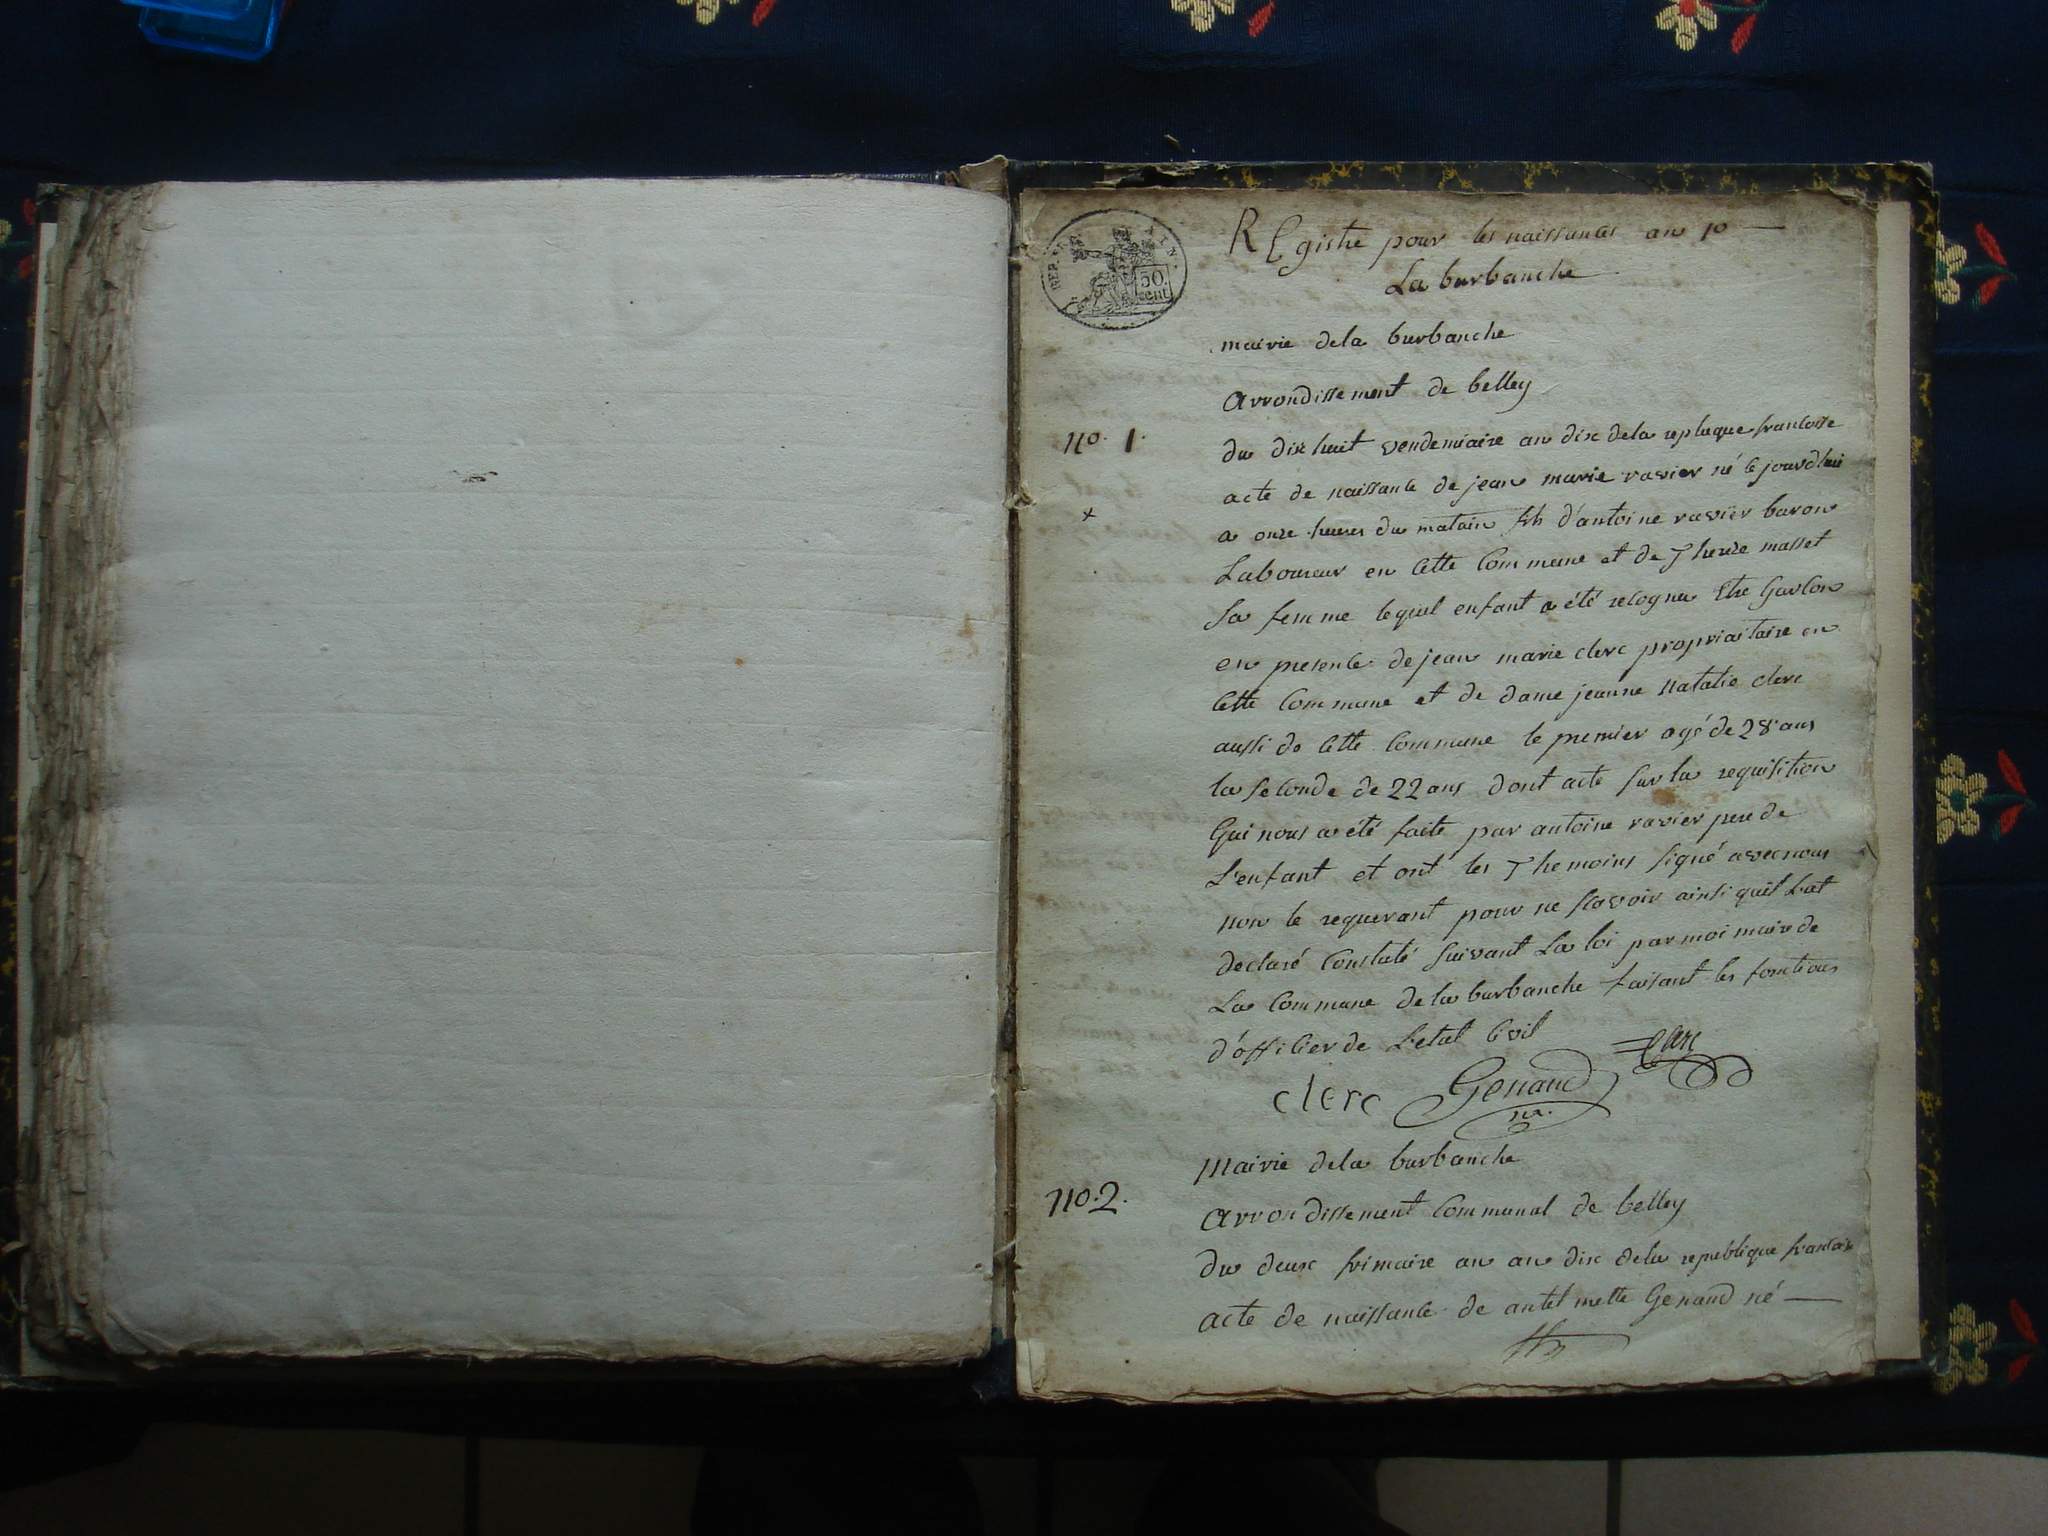 REP. FRA AIN.
50 cent
REgistre pour les naissances an 10
La burbanche
mairie dela burbanche
arrondissement de belley
no. 1.
du dix huit vendemiaire an dix dela repluque francoise
acte de naissance de jean marie ravier né le jourdhui
x
a onze heures du matain fils d'antoine ravier baron
Laboureur en cette commune et de Therèze masset
sa femme lequel enfant a été recognu Etre Garcon
en presence de jean marie clerc propriaitaire en
cette commune et de dame jeanne natalie clerc
aussi de cette commune le premier agé de 28 ans
la seconde de 22 ans dont acte sur la requisition
Qui nous a été faite par antoine ravier pere de
L'enfant et ont les Themoins signé avec nous
non le requerant pour ne scavoir ainsi quil Lat
declaré Constaté suivant La loi par moi maire de
La commune dela burbanche faisant les fonctions
d'officier de L'etat Civil
Clerc
clerc Genand
mr.
Mairie dela burbanche
no. 2.
arrondissement communal de belley
du deux frimaire an an dix dela republique francaise
acte de naissance de antel mette Genand né